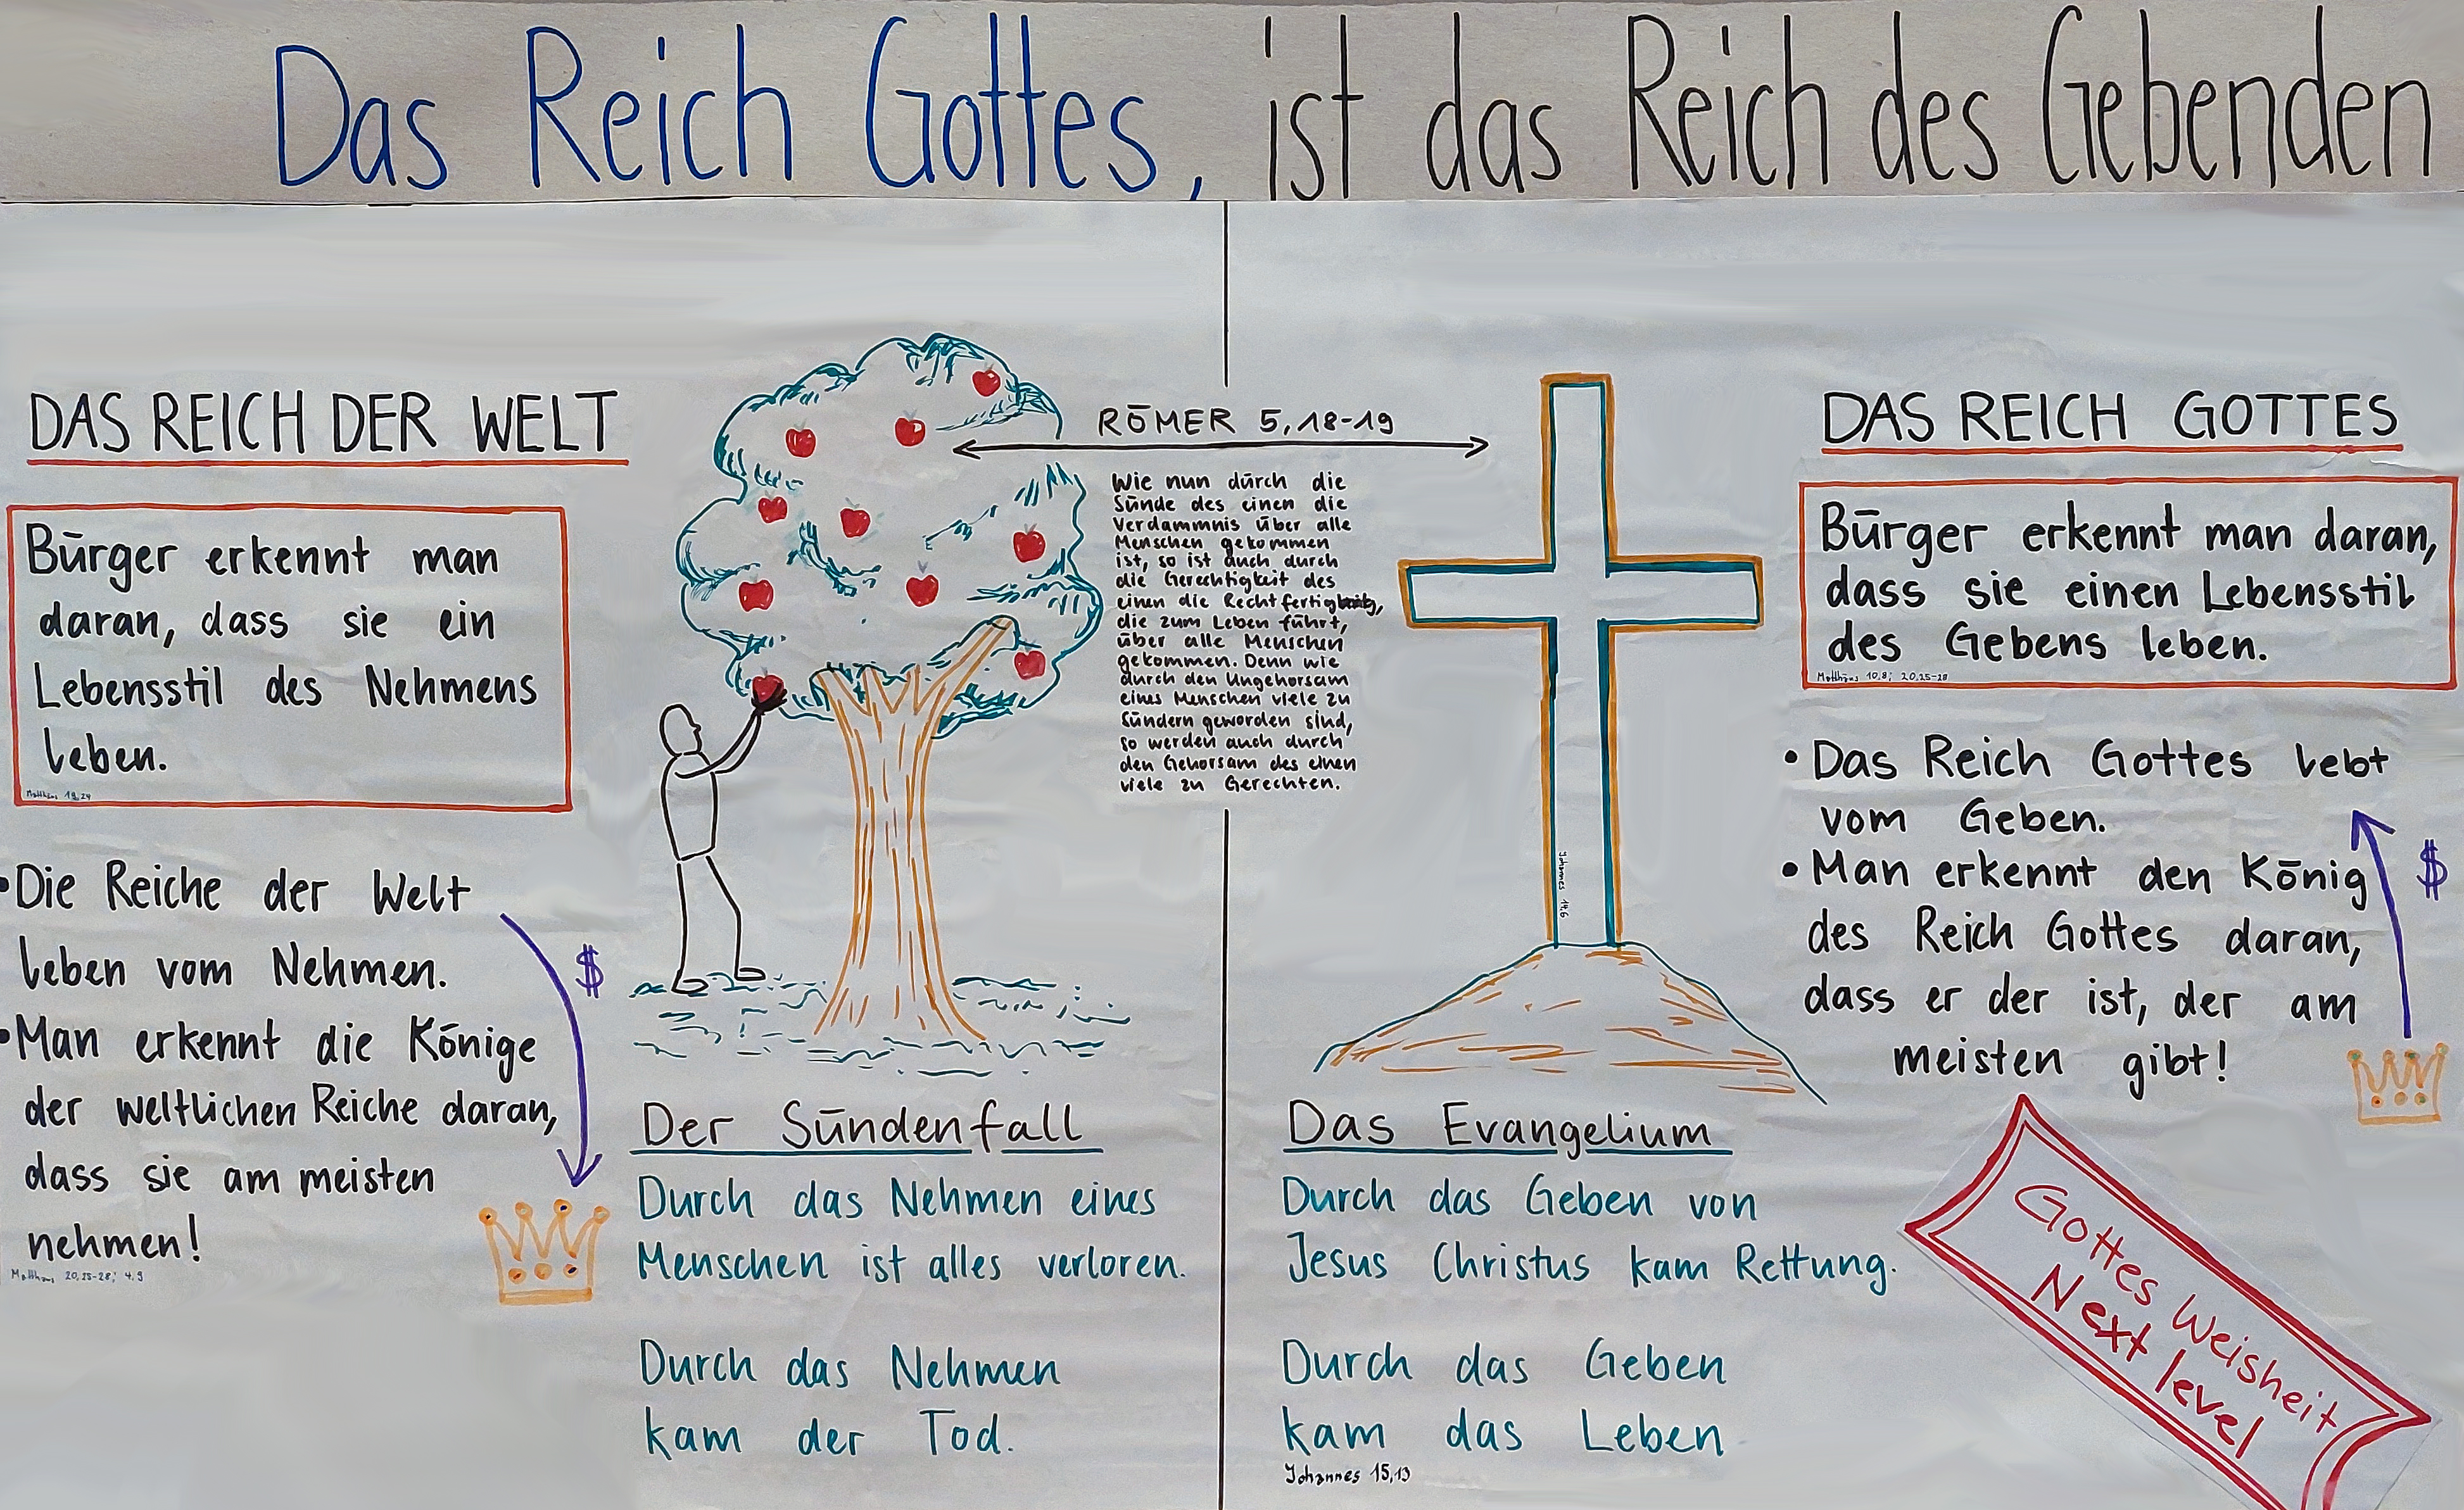 Das Reich Gottes, ist das Reich des Gebenden
DAS REICH DER WELT
Bürger erkennt man
daran, dass sie ein
Lebensstil des Nehmens
leben.
Matthäus 19,24
• Die Reiche der Welt
leben vom Nehmen.
$
• Man erkennt die Könige
der weltlichen Reiche daran,
dass sie am meisten
nehmen!
Matthäus 20,25-28; 4,9
RÖMER 5,18-19
Wie nun durch die
Sünde des einen die
Verdammnis über alle
Menschen gekommen
ist, so ist auch durch
die Gerechtigkeit des
einen die
die zum Leben führt,
über alle Menschen
gekommen. Denn wie
durch den Ungehorsam
eines Menschen viele zu
Sündern geworden sind,
so werden auch durch
den Gehorsam des einen
viele zu Gerechten.
Der Sündenfall
Durch das Nehmen eines
Menschen ist alles verloren.
Durch das Nehmen
kam der Tod.
Johannes 14,6
Das Evangelium
Durch das Geben von
Jesus Christus kam Rettung.
Durch das Geben
kam das Leben
Johannes 15,13
DAS REICH GOTTES
Bürger erkennt man daran,
dass sie einen Lebensstil
des Gebens leben.
Matthäus 10,8; 20,25-28
• Das Reich Gottes lebt
vom Geben.
$
• Man erkennt den König
des Reich Gottes daran,
dass er der ist, der am
meisten gibt!
Gottes Weisheit
Next level